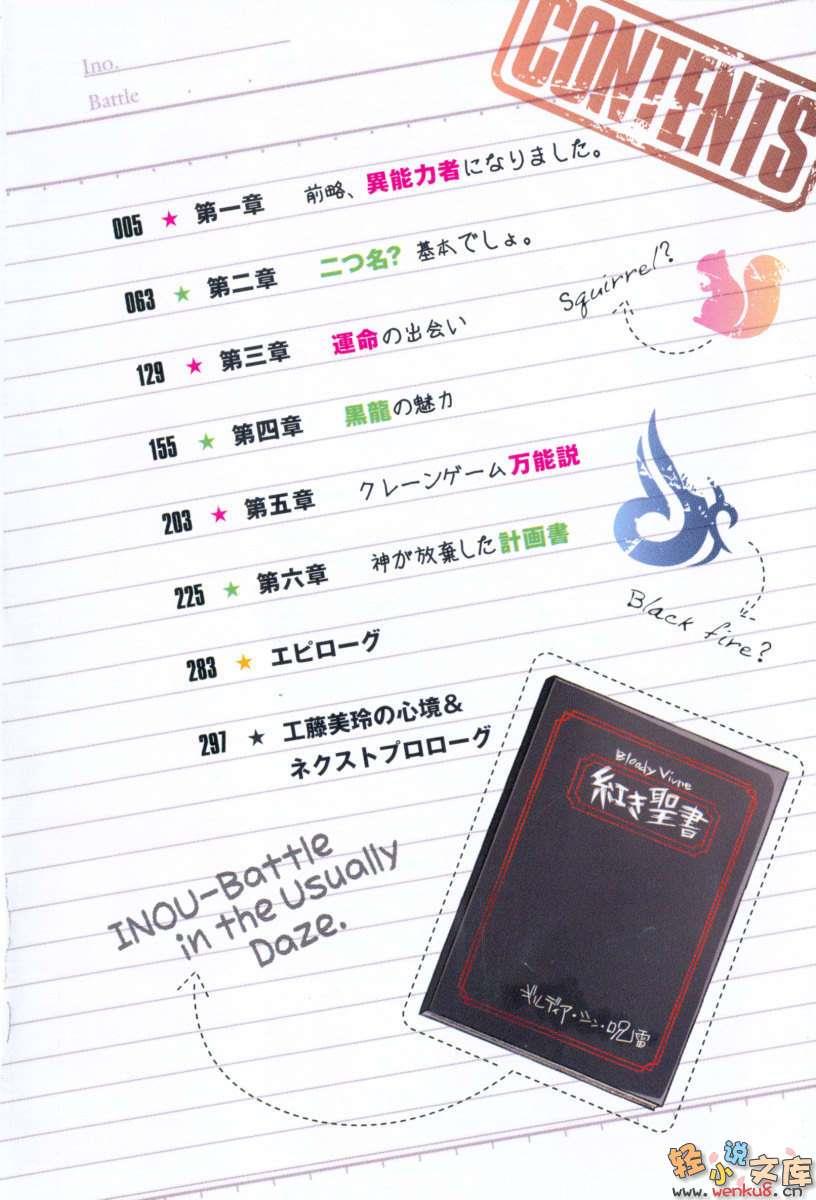 Ino.
Battle
CONTENTS
005 ★ 第一章 前略、異能力者になりました。
063 ★ 第二章 二つ名? 基本でしょ。
Squirrel?
129 ★ 第三章 運命の出会い
155 ★ 第四章 黒龍の魅力
203 ★ 第五章 クレーンゲーム万能説
225 ★ 第六章 神が放棄した計画書
Black fire?
283 ★ エピローグ
297 ★ 工藤美玲の心境&
ネクストプロローグ
Bloody Vivre
紅き聖書
ギルディア・シン・呪雷
INOU-Battle
in the Usually
Daze.
轻小说文库
www.wenku8.cn